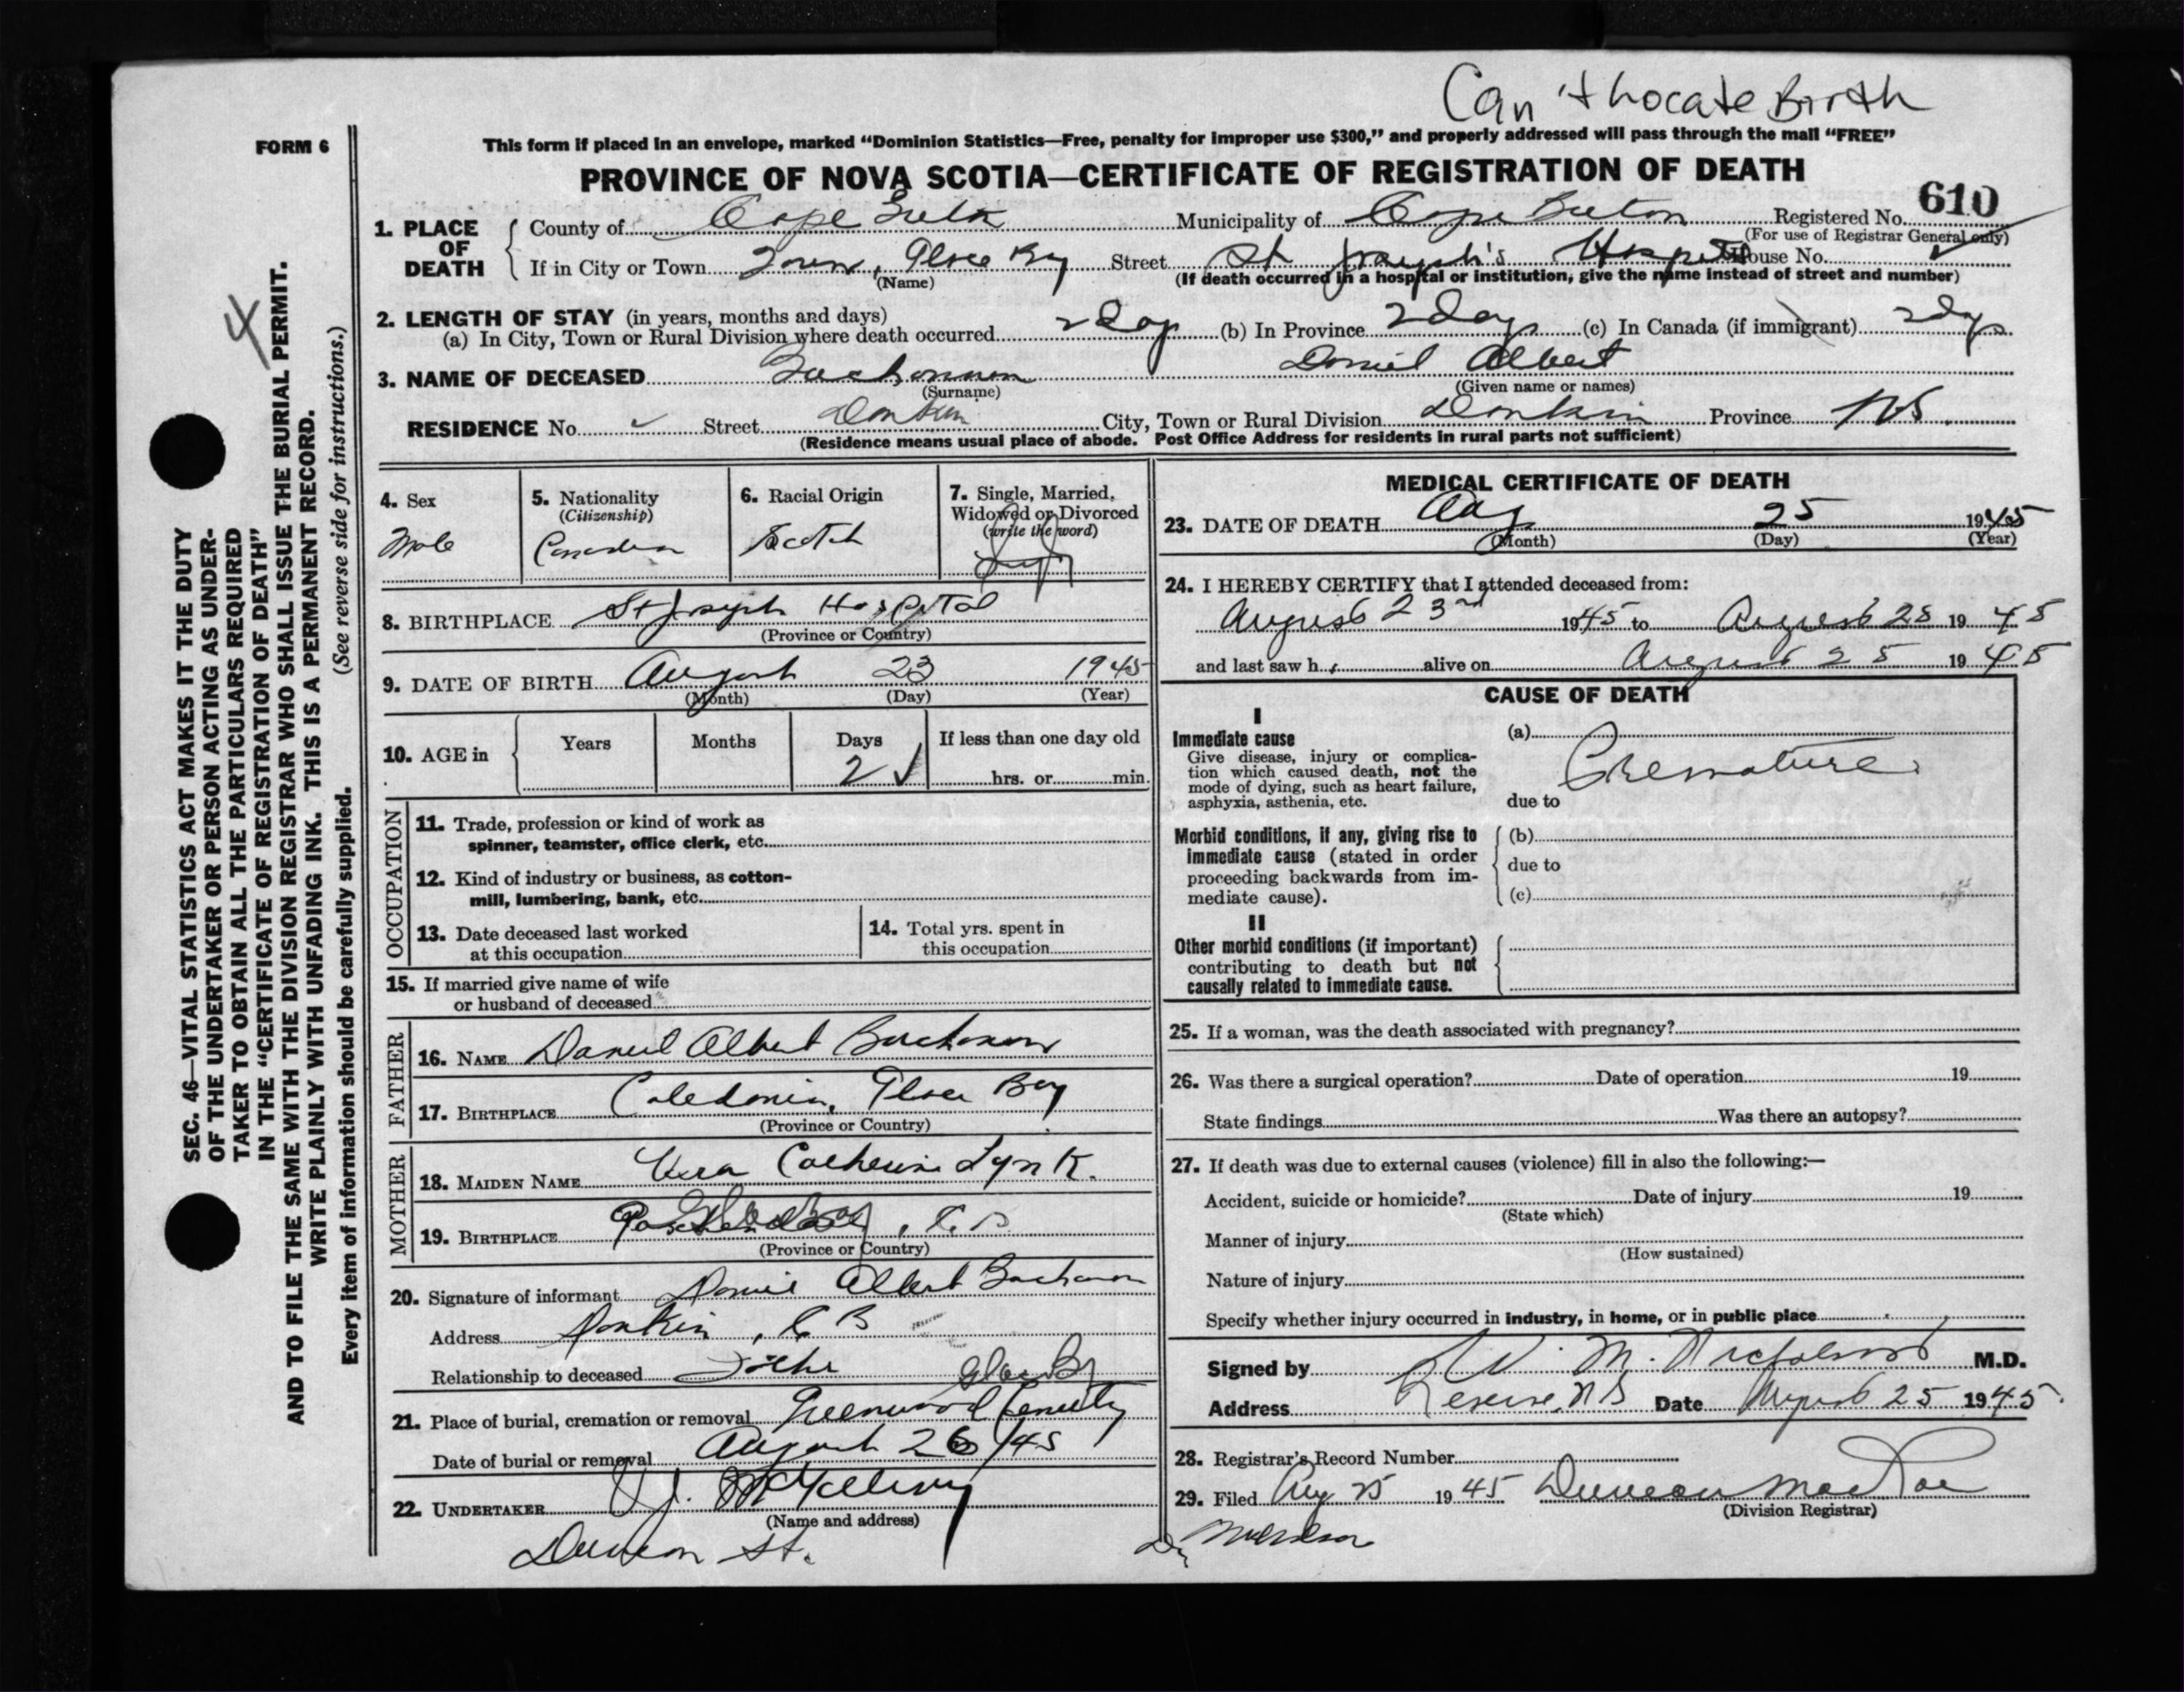 Can't Locate Birth
FORM 6
This form if placed in an envelope, marked “Dominion Statistics—Free, penalty for improper use $300,” and properly addressed will pass through the mail “FREE”
PROVINCE OF NOVA SCOTIA—CERTIFICATE OF REGISTRATION OF DEATH
610
1. PLACE OF DEATH
County of Cape Breton Municipality of Cape Breton Registered No.
(For use of Registrar General only)
If in City or Town Town, Glace Bay Street St Joseph's Hospital House No.
(Name) (If death occurred in a hospital or institution, give the name instead of street and number)
2. LENGTH OF STAY (in years, months and days)
(a) In City, Town or Rural Division where death occurred 2 days (b) In Province 2 days (c) In Canada (if immigrant) 2 days
3. NAME OF DECEASED Buchannan Daniel Albert
(Surname) (Given name or names)
RESIDENCE No. Street Donkin City, Town or Rural Division Donkin Province NS.
(Residence means usual place of abode. Post Office Address for residents in rural parts not sufficient)
4. Sex
Male
5. Nationality
(Citizenship)
Canadian
6. Racial Origin
Scotch
7. Single, Married,
Widowed or Divorced
(write the word)
8. BIRTHPLACE St Joseph Hospital
(Province or Country)
9. DATE OF BIRTH August 23 1945
(Month) (Day) (Year)
10. AGE in Years Months Days If less than one day old
2 hrs. or min.
OCCUPATION
11. Trade, profession or kind of work as
spinner, teamster, office clerk, etc.
12. Kind of industry or business, as cotton-
mill, lumbering, bank, etc.
13. Date deceased last worked
at this occupation
14. Total yrs. spent in
this occupation
15. If married give name of wife
or husband of deceased
FATHER
16. NAME Daniel Albert Buchanan
17. BIRTHPLACE Caledonia, Glace Bay
(Province or Country)
MOTHER
18. MAIDEN NAME Vera Catherine Lynk.
19. BIRTHPLACE , C. B.
(Province or Country)
20. Signature of informant Daniel Albert Buchanan
Address Donkin, C B
Relationship to deceased Father
Glace Bay
21. Place of burial, cremation or removal Greenwood Cemetery
Date of burial or removal August 26/45
22. UNDERTAKER
(Name and address)
St.
MEDICAL CERTIFICATE OF DEATH
23. DATE OF DEATH Aug 25 1945
(Month) (Day) (Year)
24. I HEREBY CERTIFY that I attended deceased from:
August 23rd 1945 to August 25 1945
and last saw h alive on August 25 1945
CAUSE OF DEATH
I
Immediate cause
Give disease, injury or complica-
tion which caused death, not the
mode of dying, such as heart failure,
asphyxia, asthenia, etc.
(a) Premature
due to
Morbid conditions, if any, giving rise to
immediate cause (stated in order
proceeding backwards from im-
mediate cause).
(b)
due to
(c)
II
Other morbid conditions (if important)
contributing to death but not
causally related to immediate cause.
25. If a woman, was the death associated with pregnancy?
26. Was there a surgical operation? Date of operation 19
State findings Was there an autopsy?
27. If death was due to external causes (violence) fill in also the following:—
Accident, suicide or homicide? Date of injury 19
(State which)
Manner of injury
(How sustained)
Nature of injury
Specify whether injury occurred in industry, in home, or in public place
Signed by M. Nicholson M.D.
Address Reserve, NS Date August 25 1945.
28. Registrar's Record Number
29. Filed Aug 25 1945 Duncan MacRae
(Division Registrar)
4
SEC. 46—VITAL STATISTICS ACT MAKES IT THE DUTY
OF THE UNDERTAKER OR PERSON ACTING AS UNDER-
TAKER TO OBTAIN ALL THE PARTICULARS REQUIRED
IN THE “CERTIFICATE OF REGISTRATION OF DEATH”
AND TO FILE THE SAME WITH THE DIVISION REGISTRAR WHO SHALL ISSUE THE BURIAL PERMIT.
WRITE PLAINLY WITH UNFADING INK. THIS IS A PERMANENT RECORD.
Every item of information should be carefully supplied. (See reverse side for instructions.)